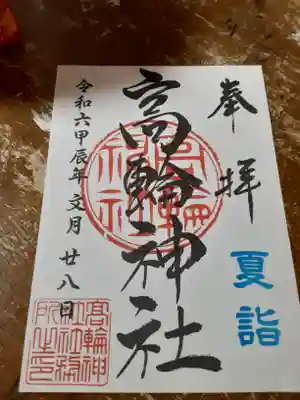 奉拝
夏詣
高輪神社
令和六甲辰年文月廿八日
高輪神社
髙輪神社社務所之印